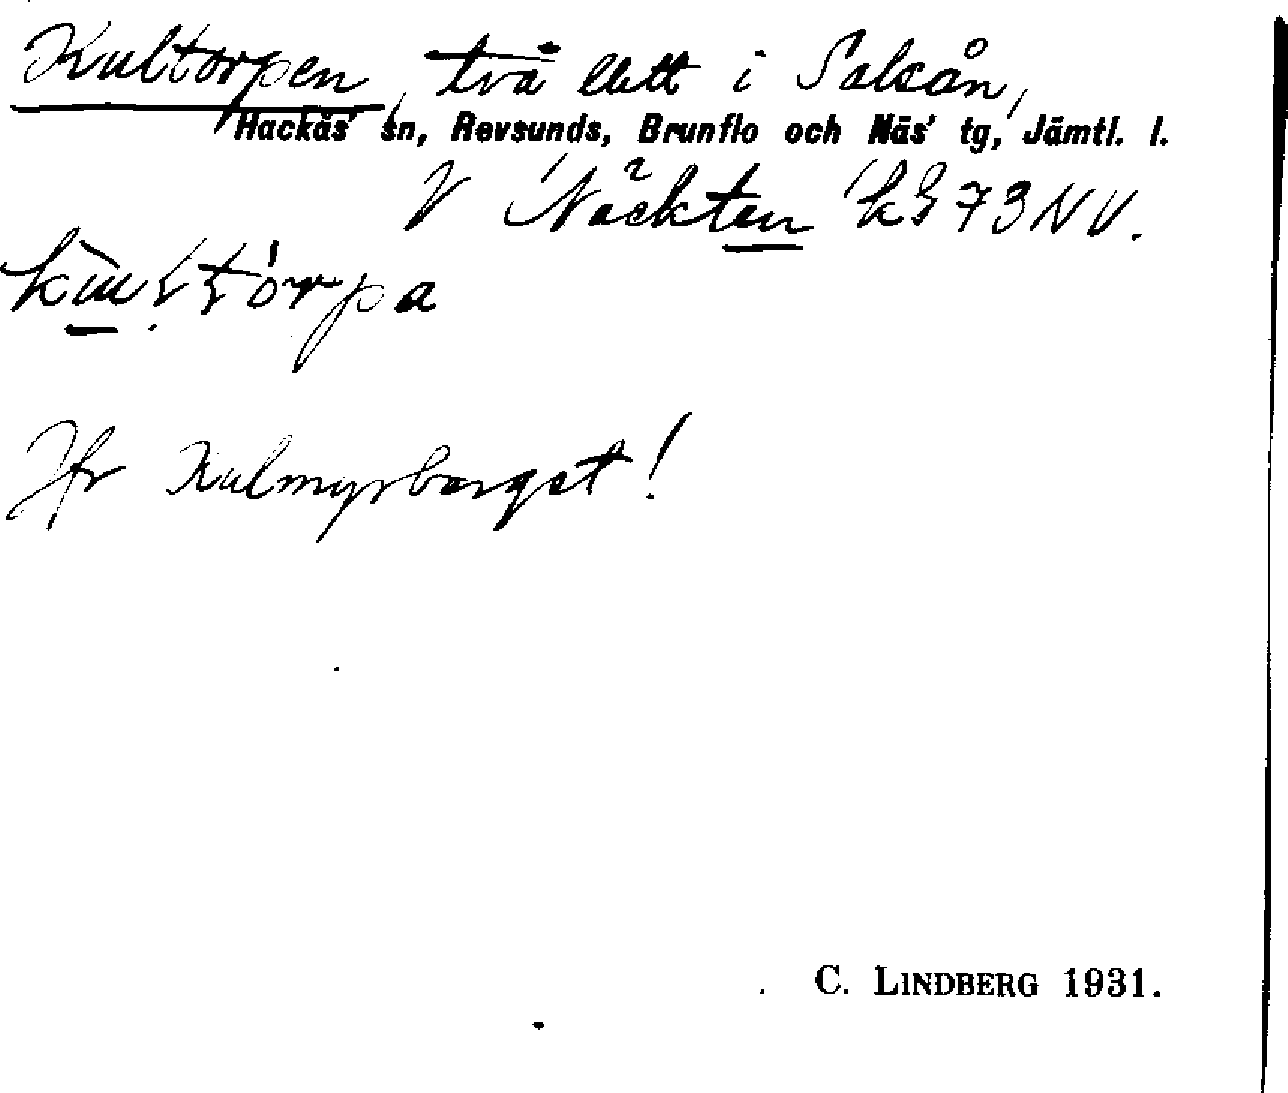 Kultorpen, två ... i Salsån,
Hackås sn, Revsunds, Brunflo och Näs' tg, Jämtl. l.
V Näckten kS 73 NV.
Jfr Kulmyrberget!
C. LINDBERG 1931.